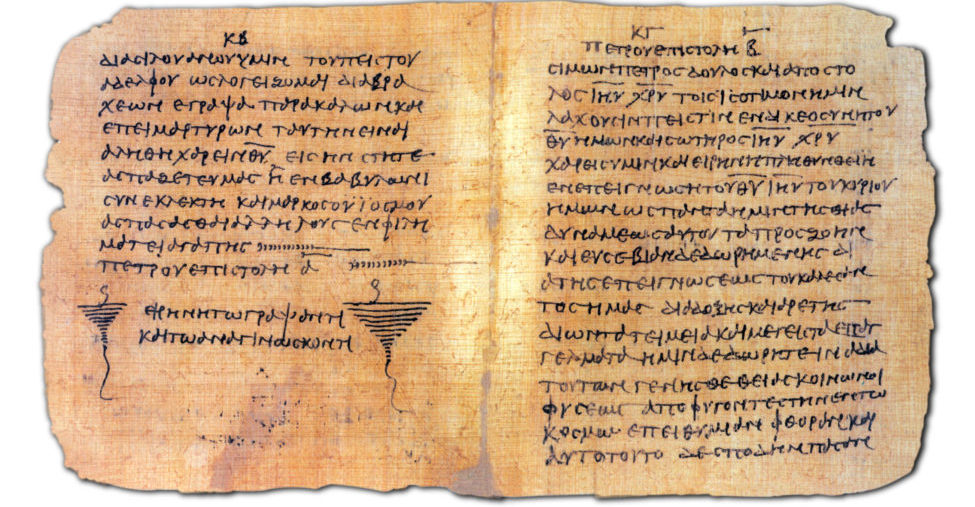 ΚΒ
διασιλουανουυμιν τουπειστου
αδελφου ωσλογειζομαι διαβρα
χεων εγραψα παρακαλωνκαι
επειμαρτυρων ταυτηνειναι
αληθηχαρεινθ̅υ̅ εισηνστητε
ασπαζετευμας η ενβαβυλωνι
συνεκλεκτη καιμαρκοσουιοσμου
ασπασασθαιαλληλους ενφιλη
ματειαγαπης
πετρουεπιστολη α̅
ειρηνητωγραψαντι
καιτωαναγινωσκοντι
ΚΓ
πετρουεπιστολη β̅
σιμωνπετρος δουλοςκαιαποστο
λος ι̅η̅υ̅ χ̅ρ̅υ̅ τοισισοτιμονημιν
λαχουσινπειστιν ενδικεοσυνητου
θ̅υ̅ ημωνκαισωτηρος ι̅η̅υ̅ χ̅ρ̅υ̅
χαρεισυμινκαιειρηνηπληθυνθειη
ενεπειγνωσητουθ̅υ̅ ι̅η̅υ̅ τουκυριου
ημων ωσπανταημιντηςθιας
δυναμεωσαυτου ταπροσζωην
καιευσεβιανδεδωρημενης δι
ατησεπειγνωσεωστουκαλεσαν
τοσημας διαδοξησκαιαρετης
διωντατειμειακαιμεγεισταεπαν
γελματα ημινδεδωρητεινα δια
τουτων γενησθεθειασκοινωνοι
φυσεως αποφυγοντεστηνεντω
κοσμω επειθυμιαν φθοραν και
αυτοτουτο δεσποδηνπασαν